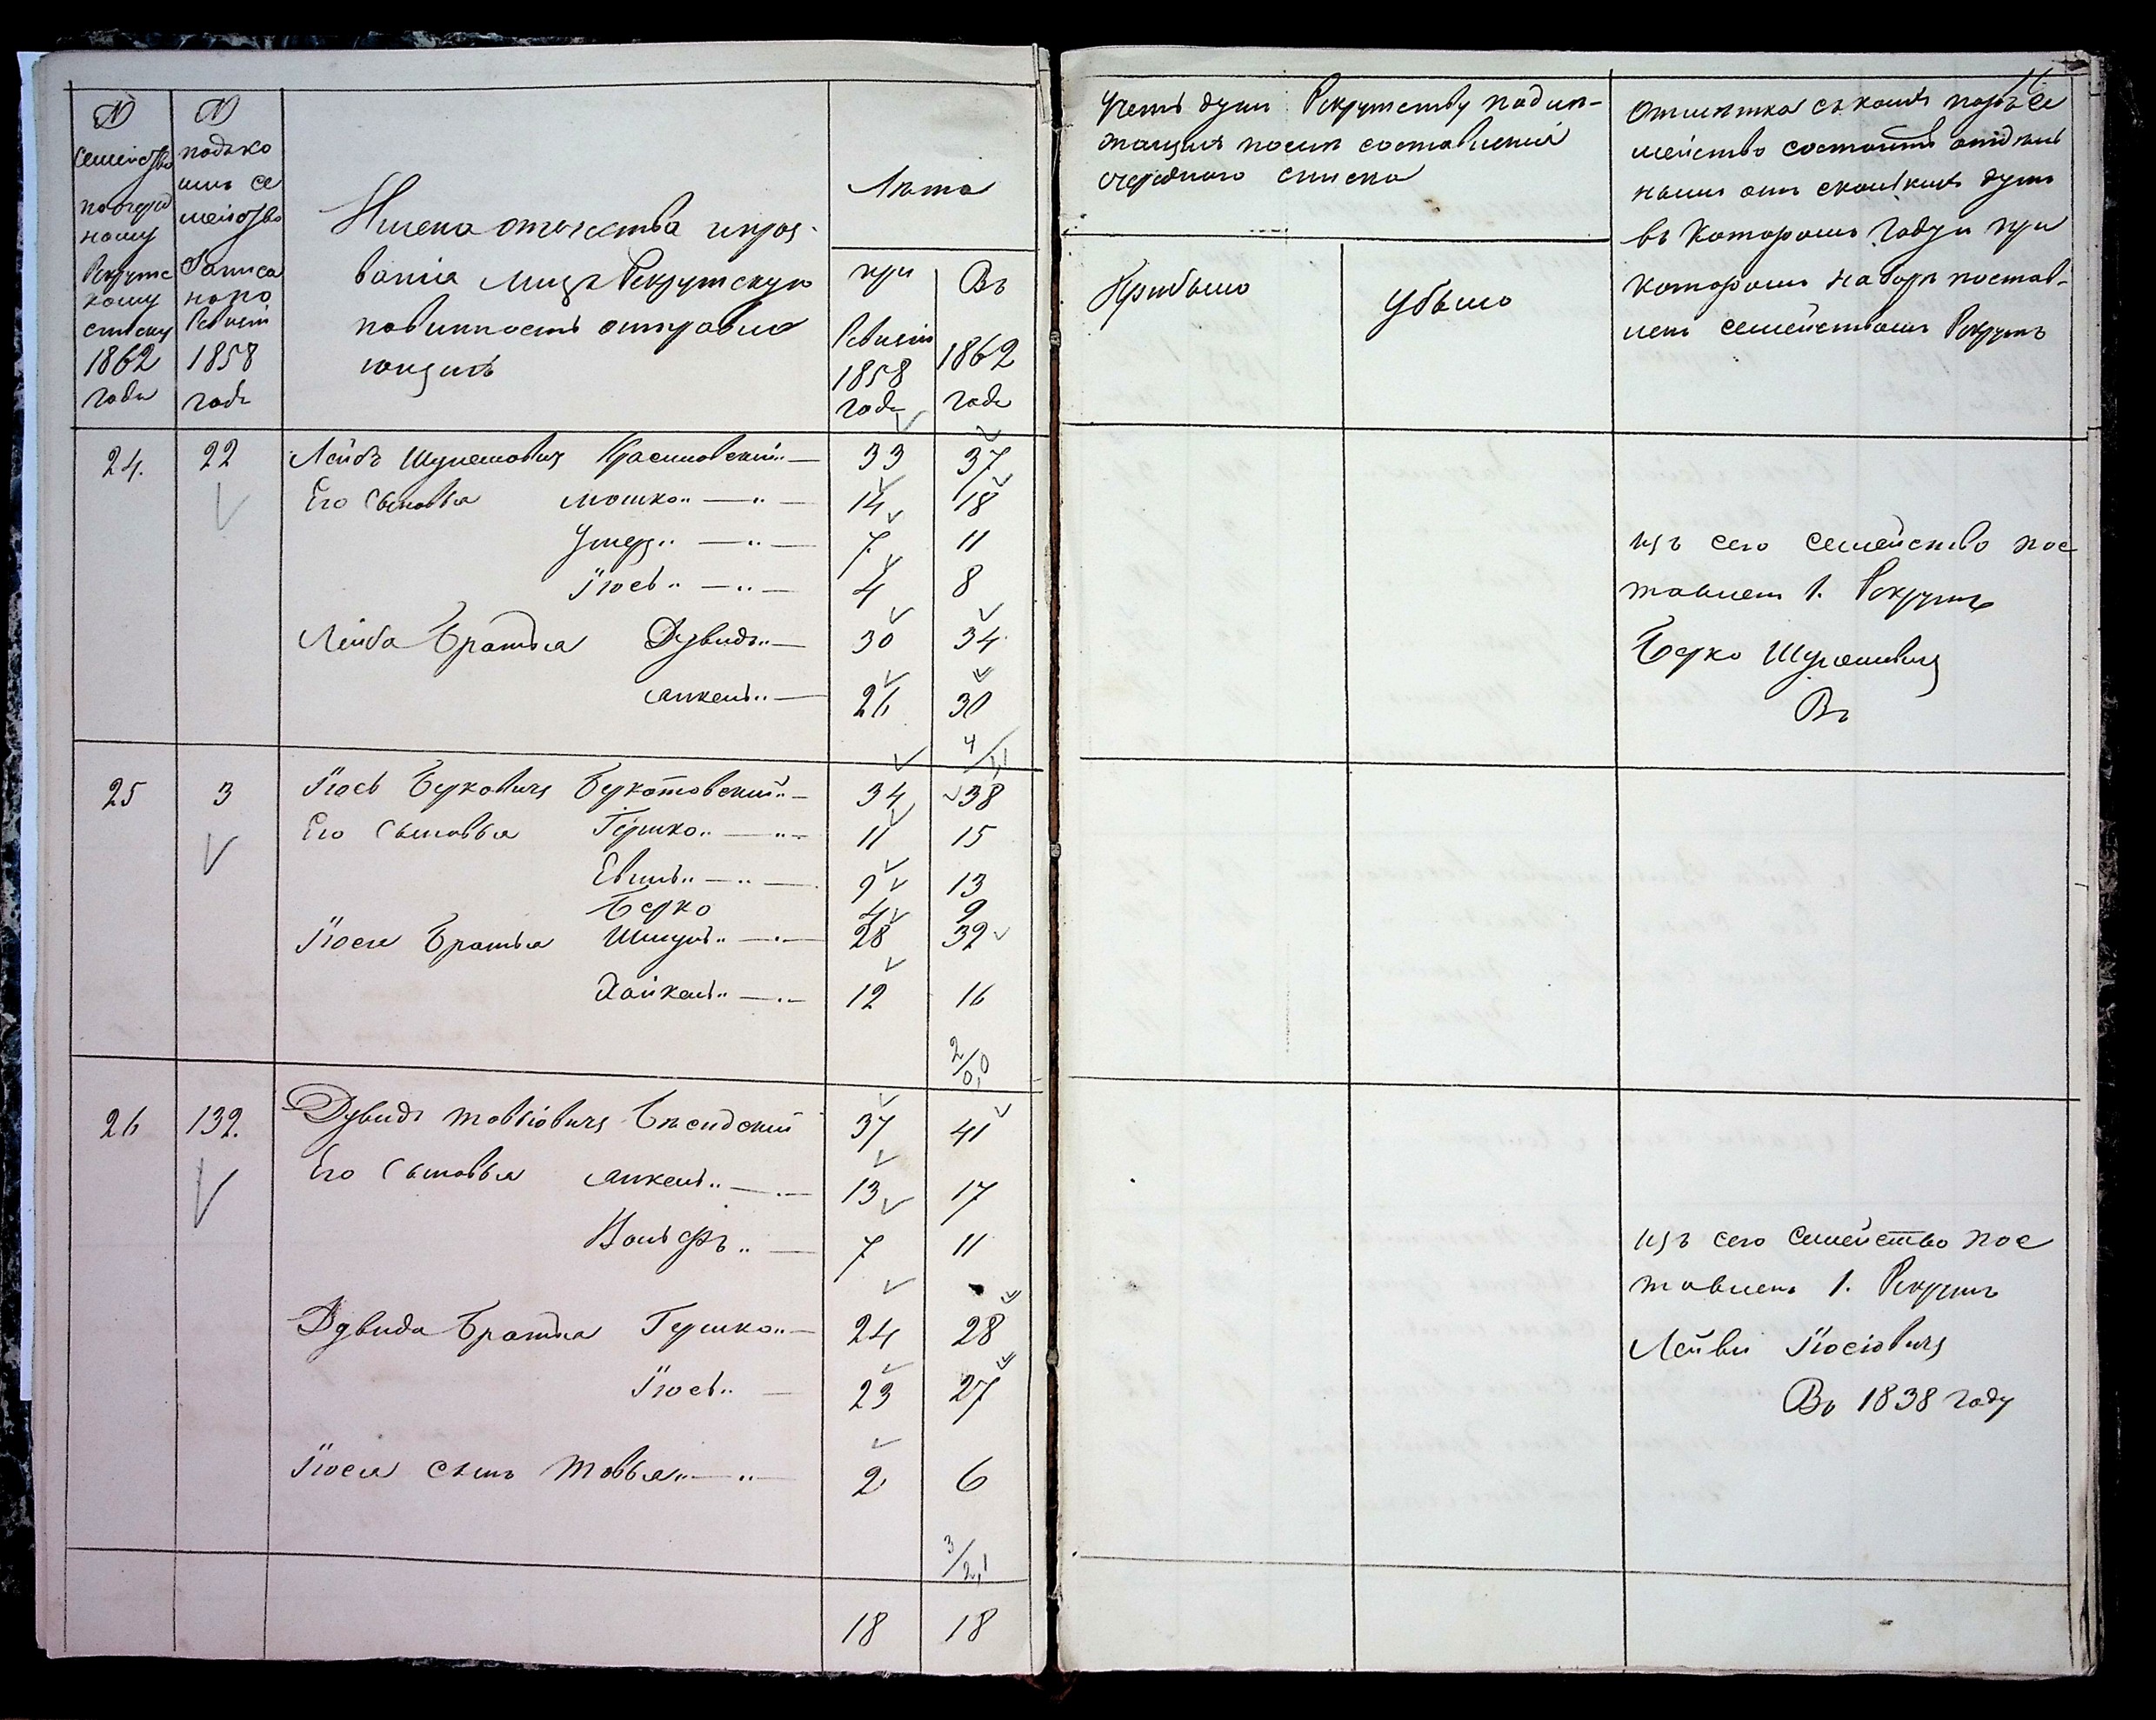 N
семейства
по очеред
ному
Рекрутс
кому
списку
1862
года
N
подъко
имъ се
мейство
Записа
но по
Ревизіи
1858
года
Имена отечества ипроз-
ванія лицъ Рекрутскую
повинность отправля
ющихъ
Лѣта
при
Ревизіи
1858
года
Въ
1862
годе
24.
22
Лейбъ Шулемовичъ Красиловскій
33
37
Его Сыновья мошко
14
18
7
11
Іось
4
8
Лейба братья Дувидъ
30
34
Янкель
26
30
4/1,1
25
3
Іось Берковичъ
34
38
Его Сыновья Гершко
11
15
9
13
Берко
4
9
Іося братья Шмуль
28
32
Хайкель
12
16
2/0,0
26
132.
Дувидъ товіовичъ
37
41
Его Сыновья Янкель
13
17
Вольфъ
7
11
Дувида братья Гершко
24
28
Іось
23
27
Іося сынъ Товья
2
6
3/2,1
18
18
Учетъ душъ Рекрутству подле-
жащихъ послѣ составленія
очереднаго списка
Прибыло
Убыло
11
Отмѣтка съ коихъ поръ се
мейство состоитъ
отъ сколькихъ душъ
въ которомъ году и при
которомъ наборѣ постав-
ленъ семействомъ Рекрутъ
изъ сего семейство пос
тавленъ 1. Рекрутъ
Берко Шулемовичъ
Въ
изъ сего семейство пос
тавленъ 1. Рекрутъ
Лейви Іосіовичъ
Въ 1838 году